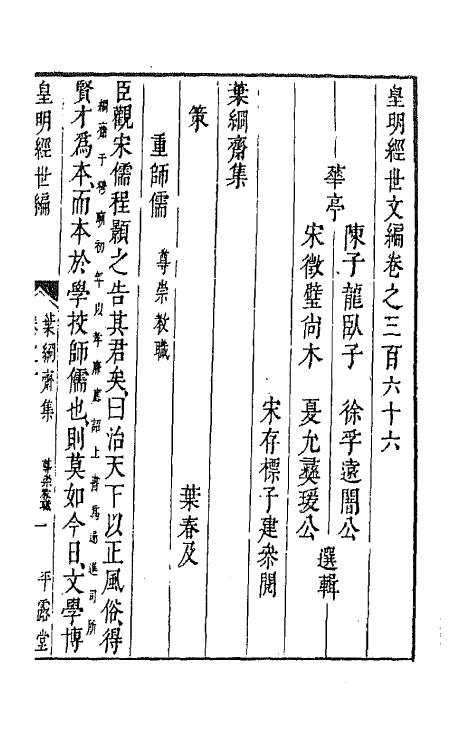 皇明經世文編卷之三百六十六
華亭
陳子龍臥子
徐孚遠闇公
宋徵璧尚木
夏允彝瑗公
選輯
宋存標子建參閱
葉絅齋集
葉春及
策
重師儒
尊崇教職
臣觀宋儒程顥之告其君矣曰治天下以正風俗得
賢才爲本而本於學校師儒也則莫如今日文學博
絅齋于穆廟初年以孝廉應詔上書爲通進司所
皇明經世編
葉絅齋集
尊崇教職
一
平露堂